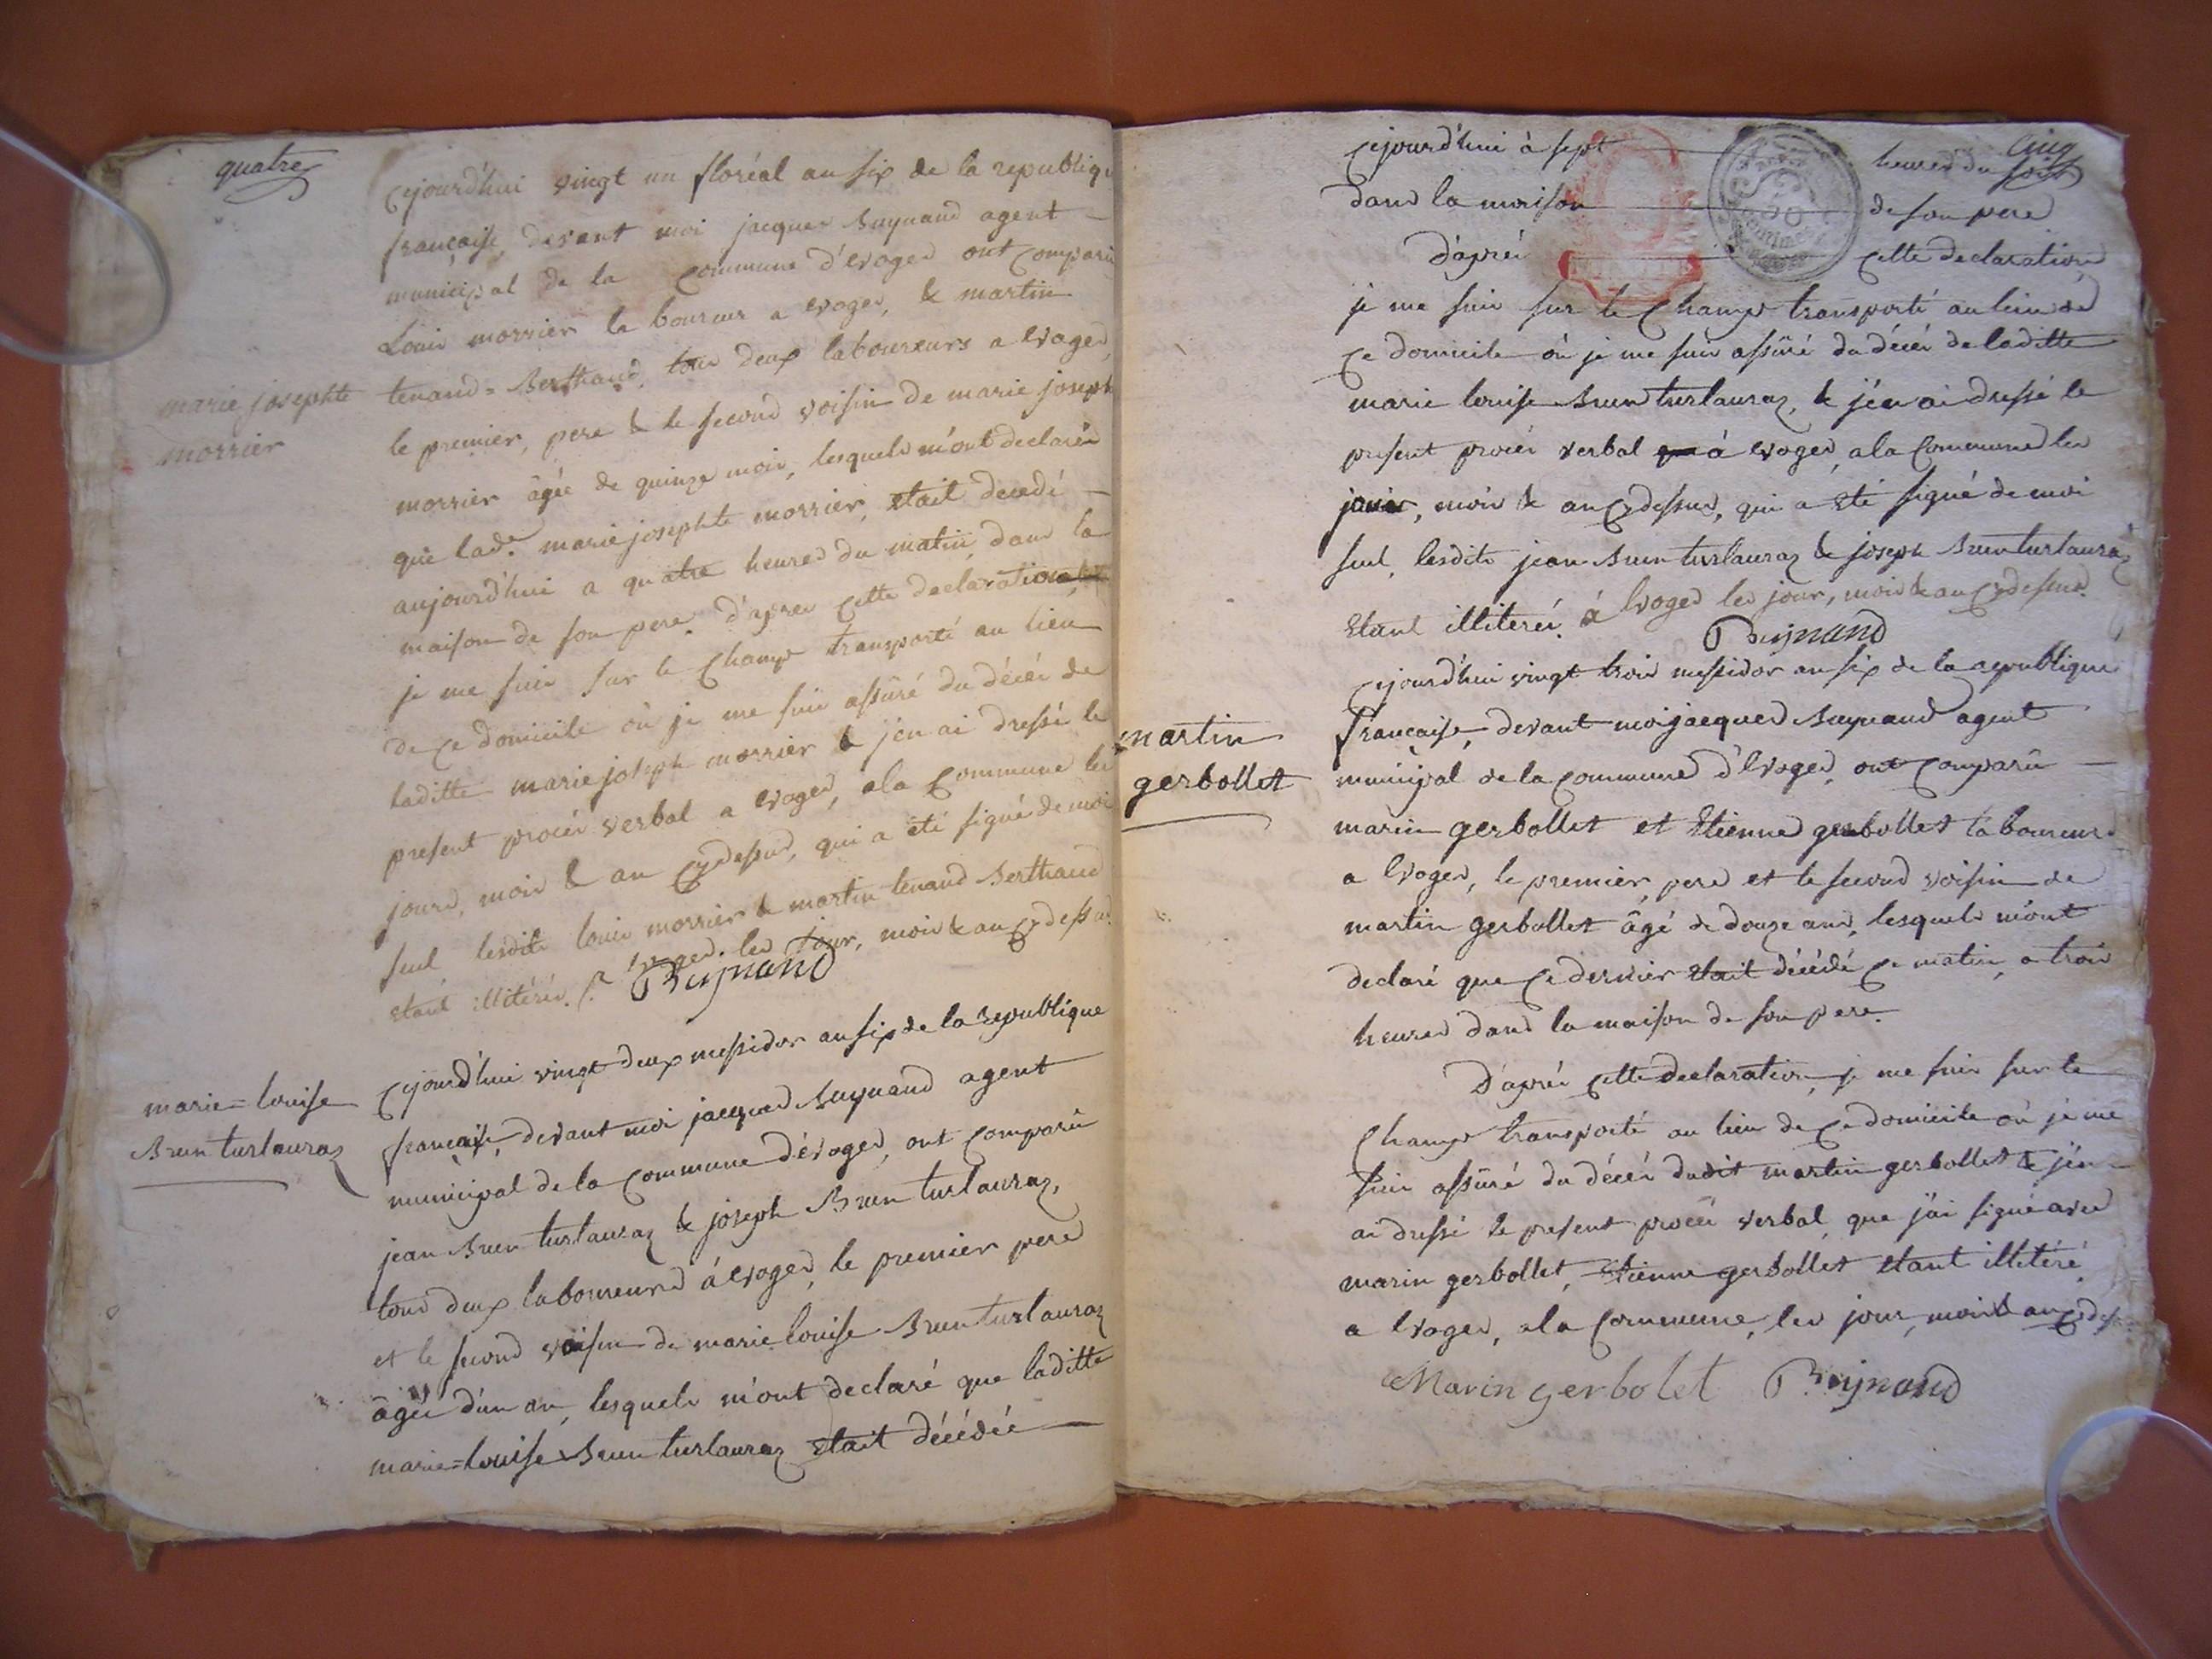 quatre
cejourd'hui vingt un floréal an six de la republiqu
française, devant moi jacques Buynand agent
municipal de la commune d'evoges ont comparu
Louis morrier la boureur a evoges, & martin
tenand=Berthaud, tous deux laboureurs a evoges,
marie josephte
morrier
le premier, pere & le second voisin de marie joseph
morrier âgée de quinze mois, lesquels m'ont declarés
que lade. marie josephte morrier, etait decedé
aujourd'hui a quatre heures du matin, dans la
maison de son pere. d'apres cette declaration,
je me suis sur le champs transporté au lieu
de ce domicile où je me suis assûré du décés de
laditte marie joseph morrier & j'en ai dressé le
present procés verbal a evoges, a la commune les
jours, mois & an cydessus, qui a été signé de moi
seul lesdits louis morrier & martin tenand Berthaud
etant illitérés. à evoges. les jour, mois & an cydessus.
Buynand
marie=louise
Brun turlauraz
cejourd'hui vingt deux messidor an six de la republique
française, devant moi jacques Buynand agent
municipal de la commune d'évoges, ont comparû
jean Brun turlauraz & joseph Brun turlauraz,
tous deux laboureurs à evoges, le premier pere
et le second voisin de marie louise Brun turlauraz
âgée d'un an, lesquels m'ont declaré que laditte
marie=louise Brun turlauraz etait décédée
cinq
cejourd'hui à sept heures du soir
dans la maison de son pere
d'aprés cette declaration,
je me suis sur le champs transporté au lieu de
ce domicile où je me suis assûré du décés de laditte
marie louise Brun turlauraz, & j'en ai dressé le
present procés verbal à evoges, a la commune les
jour, mois & an cydessus, qui a eté signé de moi
seul, lesdits jean Brun turlauraz & joseph Brun turlauraz
etant illiterés. à evoges les jour, mois & an cydessus.
Buynand
martin
gerbollet
cejourd'hui vingt trois messidor an six de la republique
française, devant moi jacques Buynand agent
municipal de la commune d'evoges, ont comparû
marin gerbollet et Etienne gerbollet laboureurs
a evoges, le premier, pere et le second voisin de
martin gerbollet âgé de douze ans, lesquels m'ont
declaré que ce dernier etait décédé ce matin, a trois
heures dans la maison de son pere.
D'aprés cette declaration, je me suis sur le
champs transporté au lieu de ce domicile où je me
suis assûré du décés dudit martin gerbollet & j'en
ai dressé le present procés verbal, que j'ai signé avec
marin gerbollet, Etienne gerbollet etant illitéré,
a evoges, a la commune, les jour, mois & an cydess
Marin gerbolet Buynand